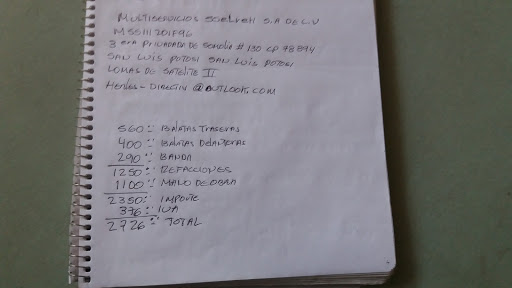 MULTISERVICIOS S.A DE C.V
3 era PRIVADA DE # 130 CP 78394
SAN LUIS POTOSI SAN LUIS POTOSI
LOMAS DE SATELITE II
@OUTLOOK.COM
560 BALATAS TRASERAS
400 BALATAS DELANTERAS
290 BANDA
1250 REFACCIONES
1100 MANO DE OBRA
2350 IMPORTE
376 IVA
2726 TOTAL